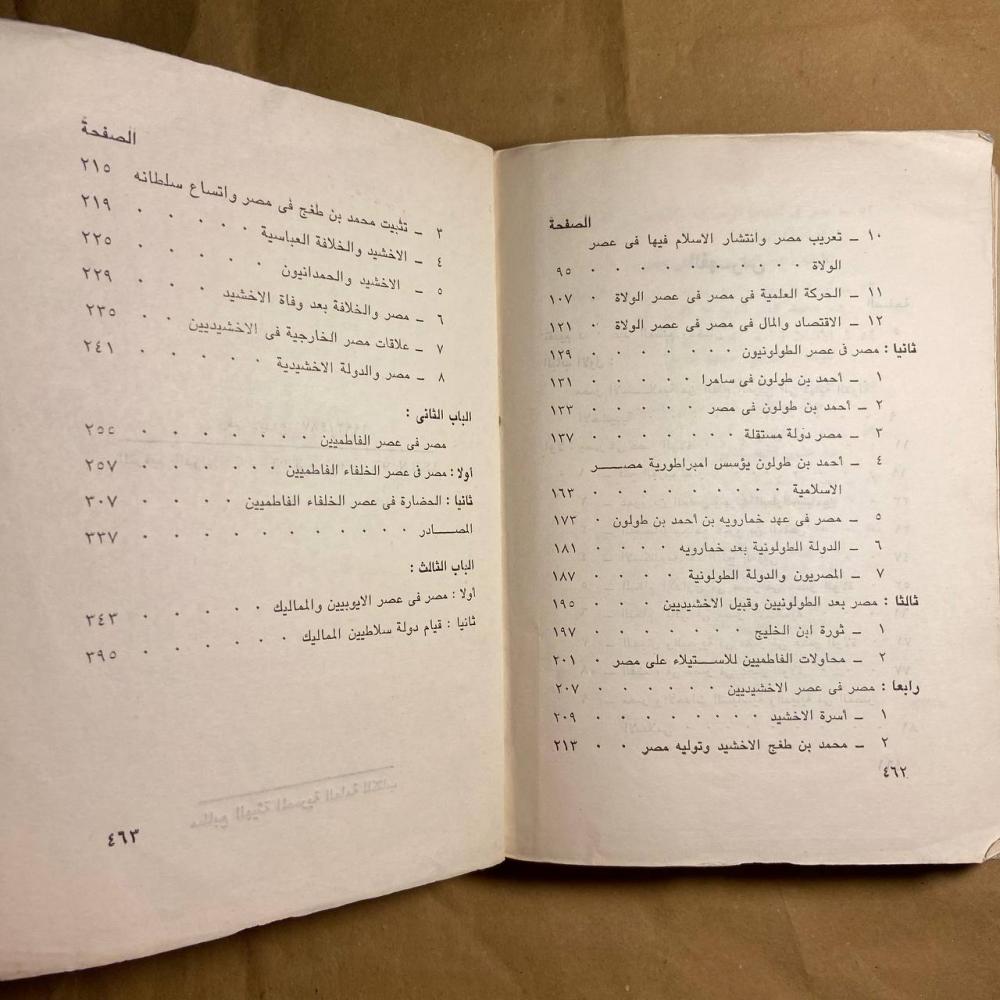 الصفحة
١٠ ـ تعريب مصر وانتشار الاسلام فيها فى عصر
الولاة . . . . . . . . . . ٩٥
١١ ـ الحركة العلمية فى مصر فى عصر الولاة . ١٠٧
١٢ ـ الاقتصاد والمال فى مصر فى عصر الولاة . ١٢١
ثانيا : مصر فى عصر الطولونيون . . . . . . . ١٢٩
١ ـ أحمد بن طولون فى سامرا . . . . . . ١٣١
٢ ـ أحمد بن طولون فى مصر . . . . . . ١٣٣
٣ ـ مصر دولة مستقلة . . . . . . . . ١٣٧
٤ ـ أحمد بن طولون يؤسس امبراطورية مصر
الاسلامية . . . . . . . . . ١٦٣
٥ ـ مصر فى عهد خمارويه بن أحمد بن طولون . ١٧٣
٦ ـ الدولة الطولونية بعد خمارويه . . . . ١٨١
٧ ـ المصريون والدولة الطولونية . . . . . ١٨٧
ثالثا : مصر بعد الطولونيين وقبيل الاخشيديين . . . . ١٩٥
١ ـ ثورة ابن الخليج . . . . . . . ١٩٧
٢ ـ محاولات الفاطميين للاستيلاء على مصر . ٢٠١
رابعا : مصر فى عصر الاخشيديين . . . . . . ٢٠٧
١ ـ أسرة الاخشيد . . . . . . . . ٢٠٩
٢ ـ محمد بن طغج الاخشيد وتوليه مصر . . ٢١٣
٤٦٢
الصفحة
٣ ـ تثبيت محمد بن طغج فى مصر واتساع سلطانه ٢١٥
٤ ـ الاخشيد والخلافة العباسية . . . . . ٢١٩
٥ ـ الاخشيد والحمدانيون . . . . . . ٢٢٥
٦ ـ مصر والخلافة بعد وفاة الاخشيد . . . . ٢٢٩
٧ ـ علاقات مصر الخارجية فى الاخشيديين . . ٢٣٥
٨ ـ مصر والدولة الاخشيدية . . . . . ٢٤١
الباب الثانى :
مصر فى عصر الفاطميين . . . . . . . ٢٥٥
اولا : مصر فى عصر الخلفاء الفاطميين . . . . . ٢٥٧
ثانيا : الحضارة فى عصر الخلفاء الفاطميين . . . . ٣٠٧
المصادر . . . . . . . . . . ٣٣٧
الباب الثالث :
اولا : مصر فى عصر الايوبيين والمماليك . . . . . ٣٤٣
ثانيا : قيام دولة سلاطيين المماليك . . . . . ٣٩٥
٤٦٣